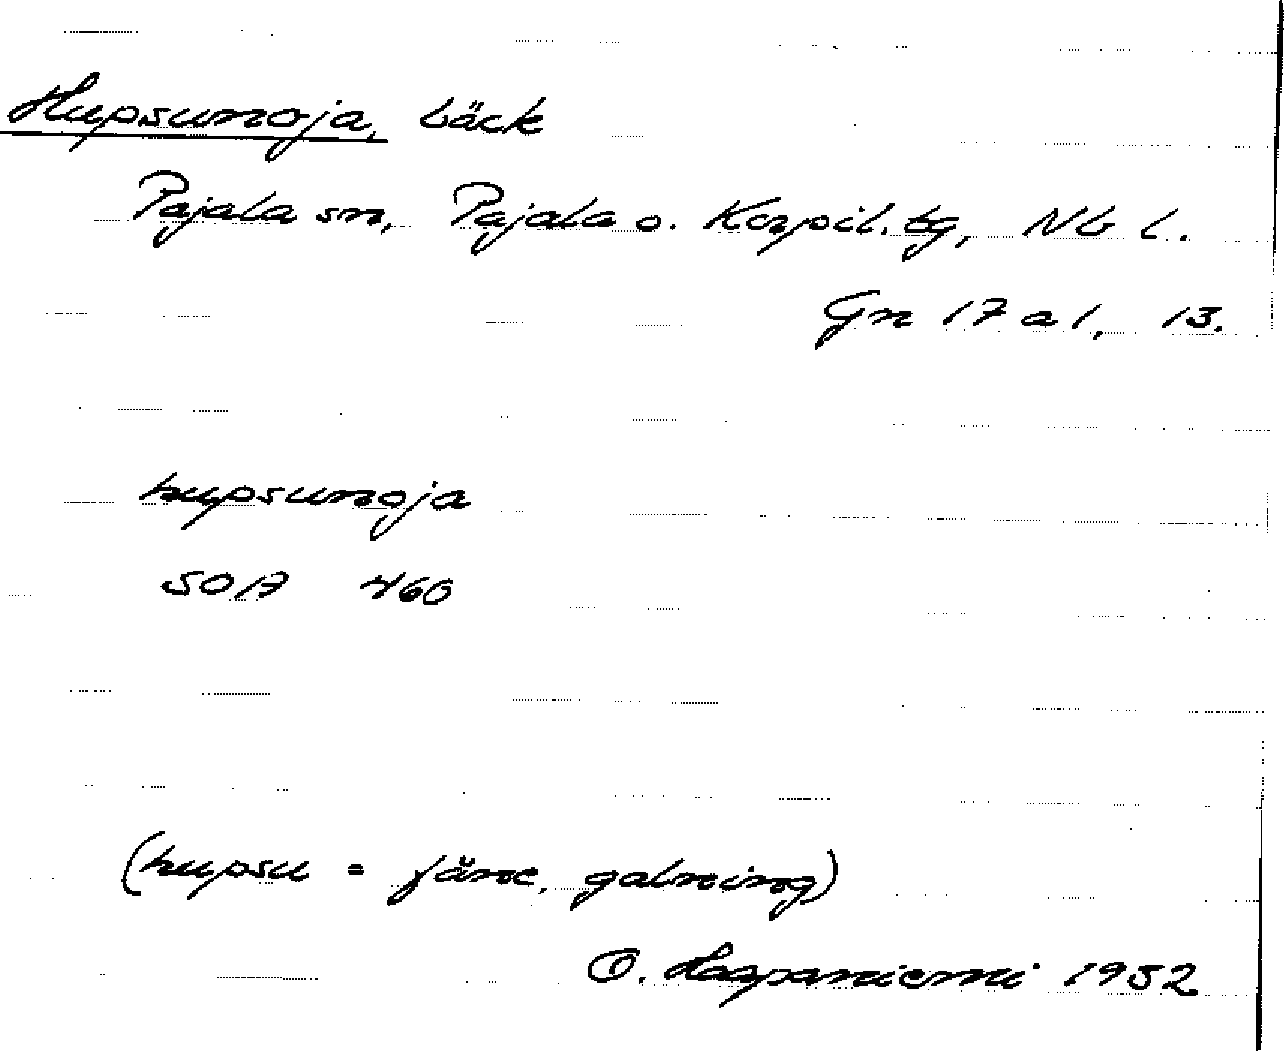 Hupsunoja, bäck
Pajala sn, Pajala o. Korpil. tg, Nb l.
Gn 17 a 1, 13.
hupsunoja
SOA 460
(hupsu = fåne, galning)
O. Haapaniemi 1952